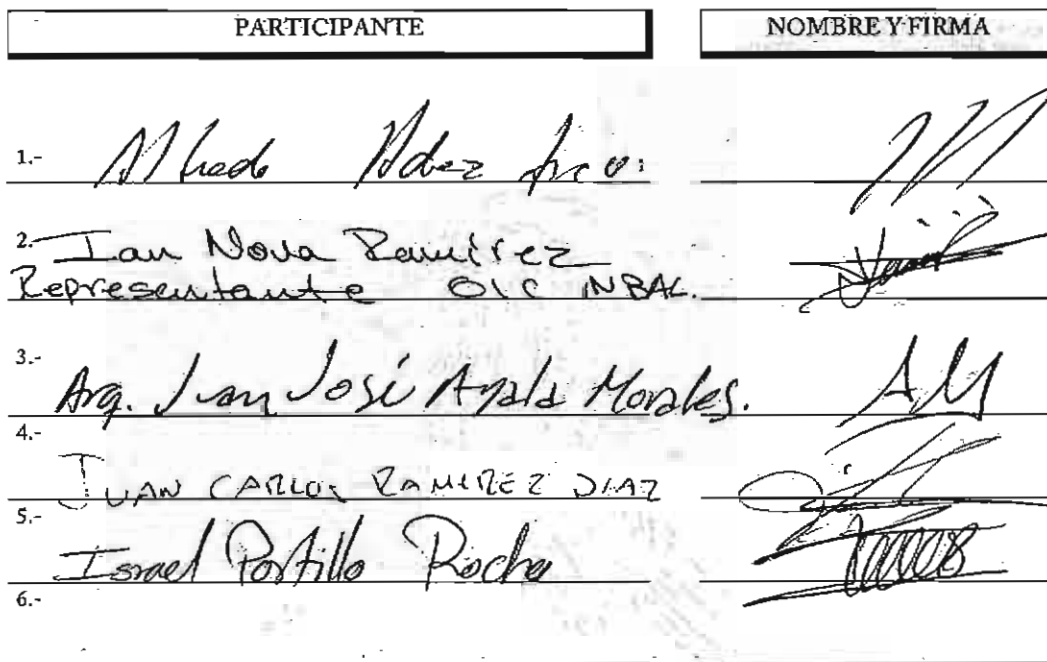 PARTICIPANTE
NOMBRE Y FIRMA
1.- Alfredo
2.- Ian Nova Ramírez
Representante OIC INBAL.
3.-
Arq. Juan José Ayala Morales.
4.-
JUAN CARLOS RAMIREZ DIAZ
5.-
Israel Portillo Rocha
6.-